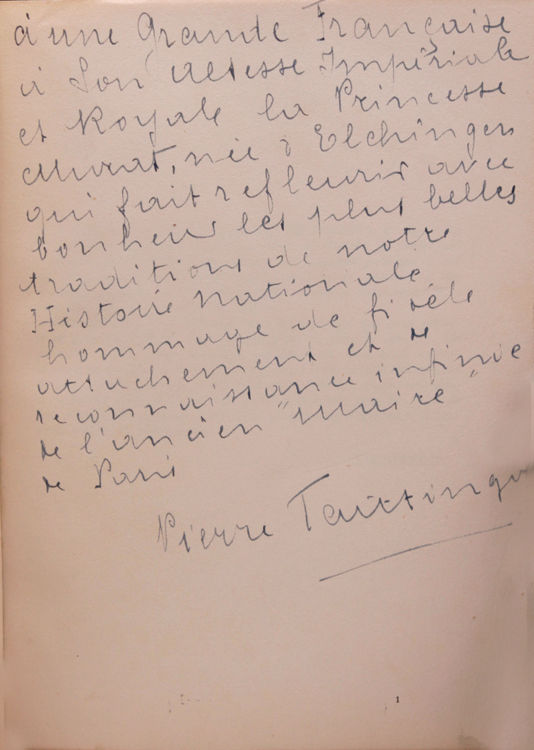 à une Grande Française
à Son Altesse Impériale
et Royale la Princesse
Murat, née d'Elchingen
qui fait refleurir avec
bonheur les plus belles
traditions de notre
Histoire Nationale
hommage de fidèle
attachement et de
reconnaissance infinie
de l'ancien "Maire"
de Paris
Pierre Taittinger
1